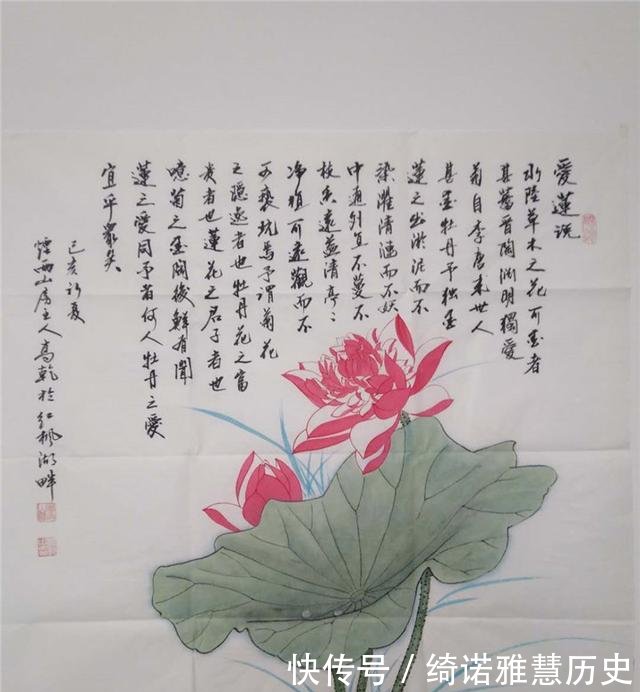 愛蓮説
水陸草木之花可愛者
甚蕃晋陶渊明獨愛
菊自李唐来世人
甚愛牡丹予独愛
蓮之出淤泥而不
染濯清漣而不妖
中通外直不蔓不
枝香遠益清亭〻
净植可遠觀而不
可褻玩焉予谓菊花
之隱逸者也牡丹花之富
贵者也蓮花之君子者也
噫菊之愛陶後鲜有聞
蓮之愛同予者何人牡丹之愛
宜乎眾矣
己亥初夏
山房主人高乾於红枫湖畔
快传号／绮诺雅慧历史